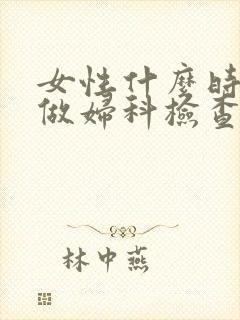 女性什麼時
做婦科檢查
林中燕